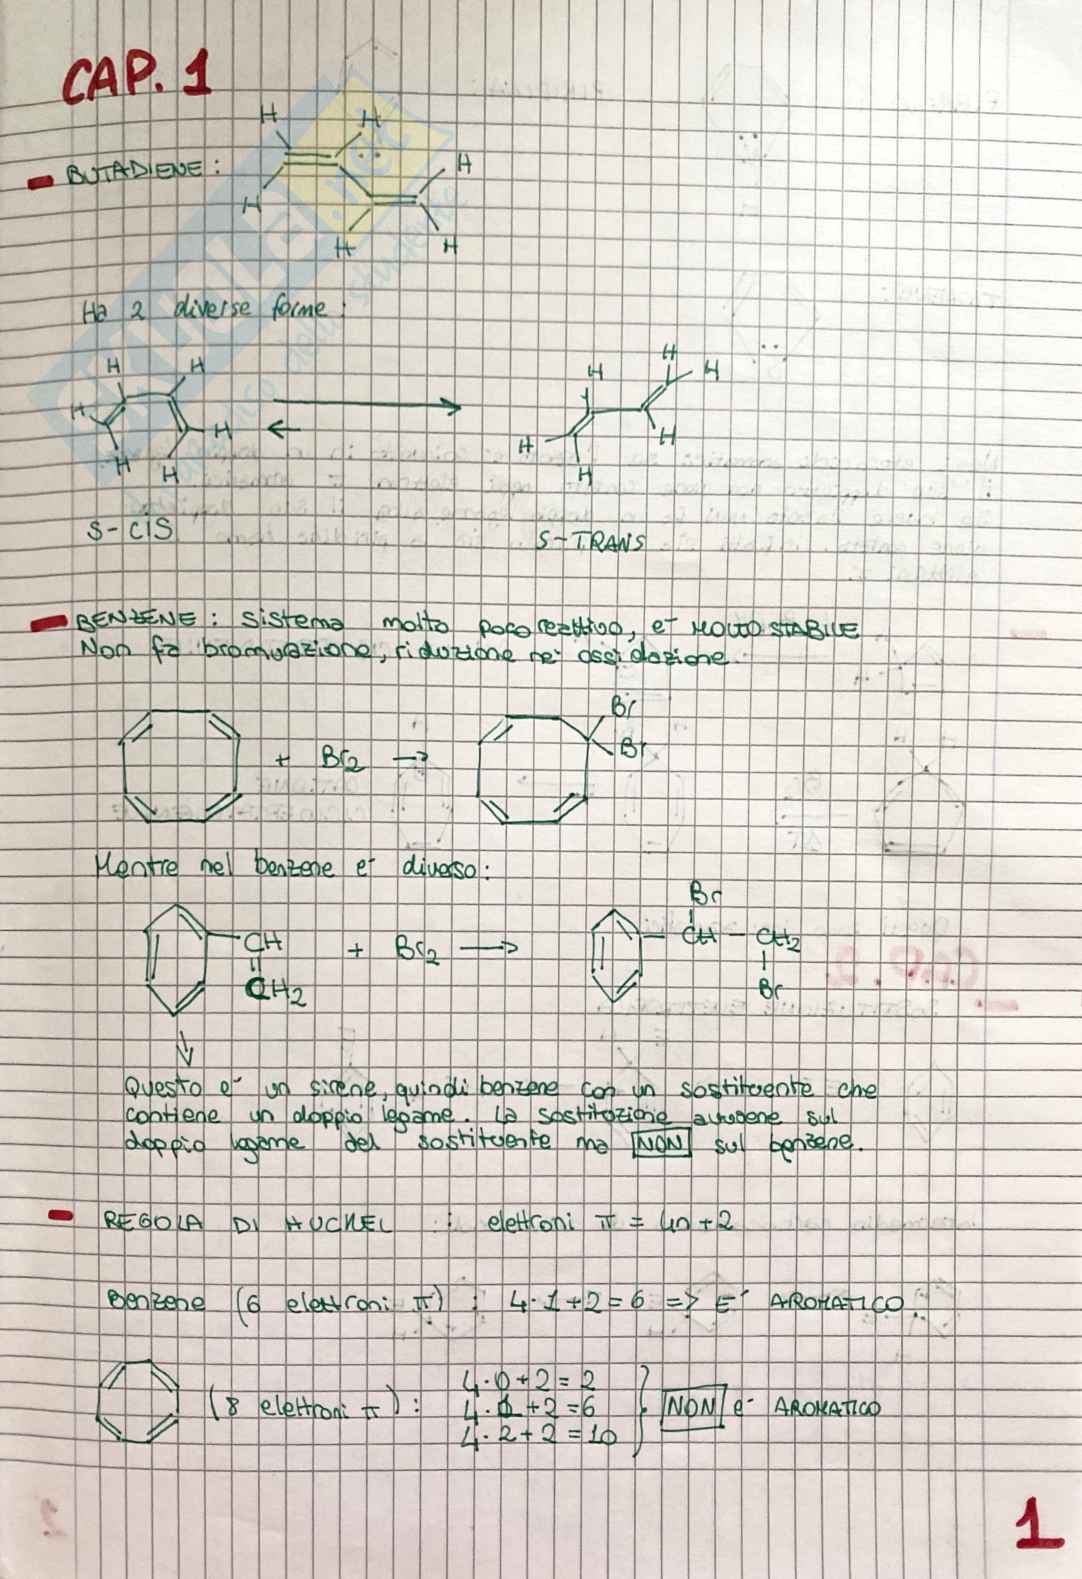 CAP. 1
H H
- BUTADIENE : H
H
H H
Ha 2 diverse forme :
H H H H
H H H H
H H H
S-CIS S-TRANS
- BENZENE : sistema molto poco reattivo, e' MOLTO STABILE
Non fa bromurazione, riduzione ne' ossidazione.
Br
+ Br2 → Br
Mentre nel benzene e' diverso :
Br
CH + Br2 → CH - CH2
CH2 Br
↓
Questo e' un sirene, quindi benzene con un sostituente che
contiene un doppio legame. La sostituzione avviene sul
doppio legame del sostituente ma NON sul benzene.
- REGOLA DI HUCKEL : elettroni π = 4n+2
Benzene (6 elettroni π) : 4·1+2=6 => E' AROMATICO.
4·0+2=2
(8 elettroni π) : 4·1+2=6 NON e' AROMATICO
4·2+2=10
1